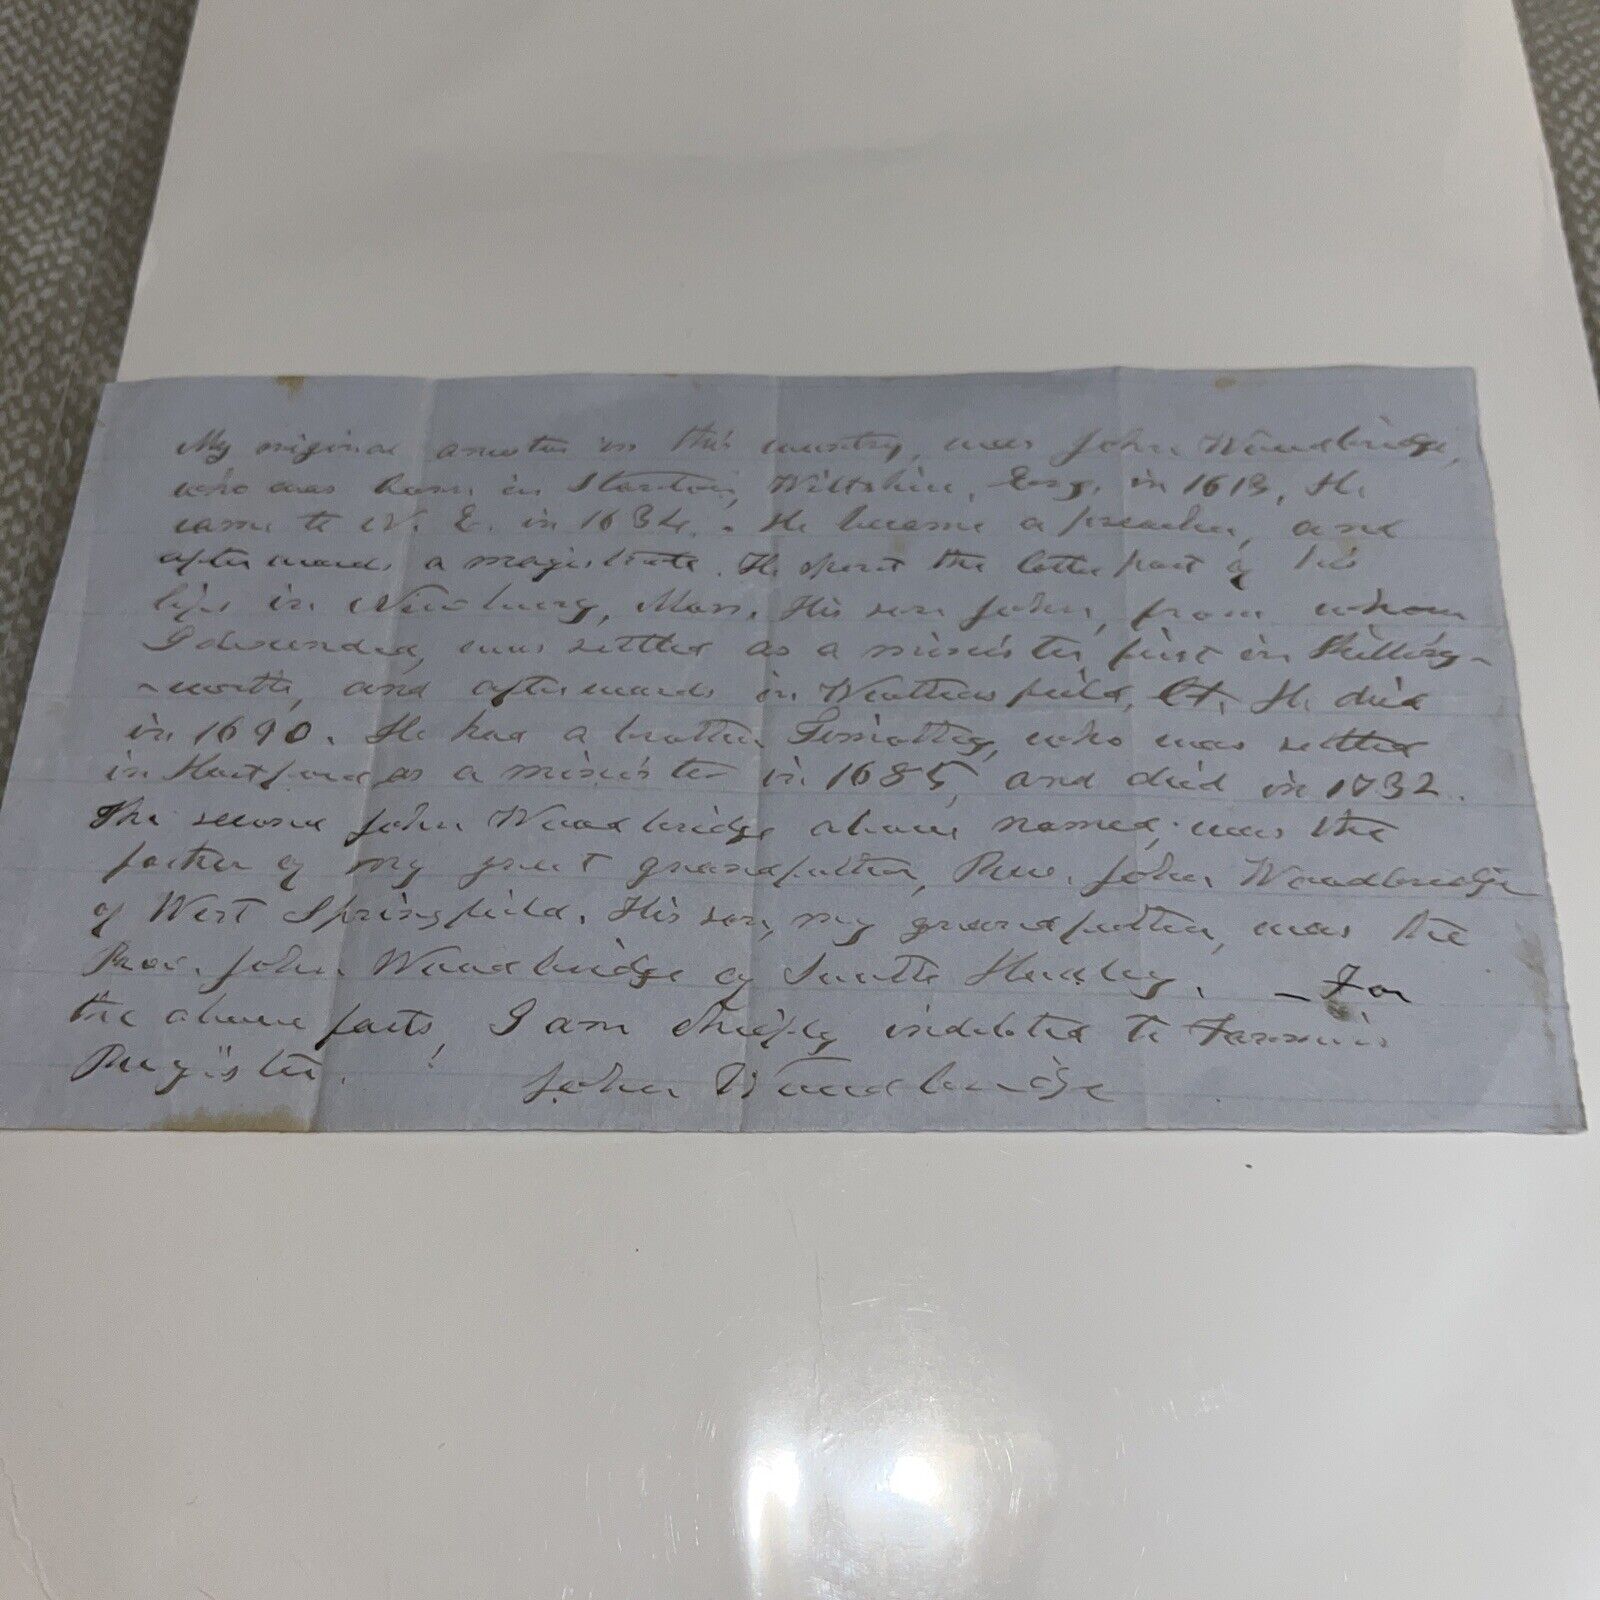 My original ancestor in this country, was John Woodbridge,
who was born in Stanton, Wiltshire, Eng. in 1613. He
came to N. E. in 1634. He became a preacher, and
afterwards a magistrate. He spent the latter part of his
life in Newbury, Mass. His son John, from whom
I descended, was settled as a minister, first in Killing-
-worth, and afterwards in Weathersfield, Ct. He died
in 1690. He had a brother Timothy, who was settled
in Hartford as a minister in 1685, and died in 1732.
The second John Woodbridge above named, was the
father of my great grandfather, Rev. John Woodbridge
of West Springfield. His son, my grandfather, was the
Rev. John Woodbridge of South Hadley. — For
the above facts, I am chiefly indebted to Farmer's
Register. John Woodbridge